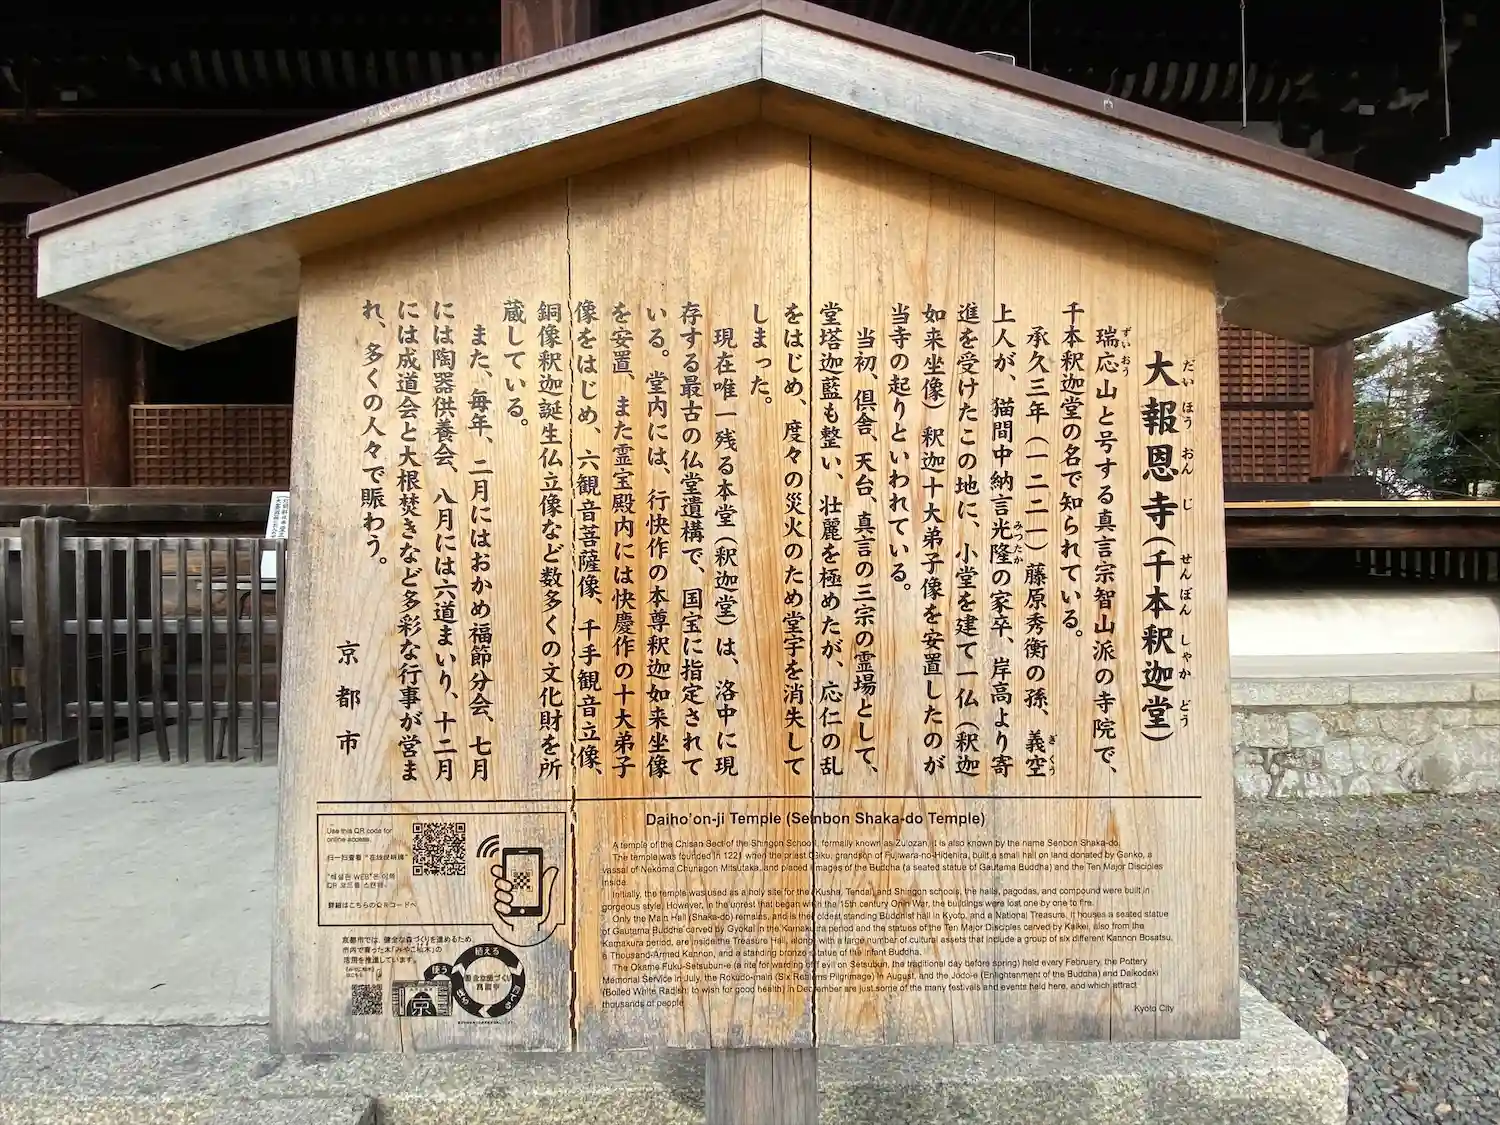 大報恩寺（千本釈迦堂）
だい ほう おん じ せんぼん しゃか どう
瑞応山と号する真言宗智山派の寺院で、
ずいおう
千本釈迦堂の名で知られている。
承久三年（一二二一）藤原秀衡の孫、義空
ぎくう
上人が、猫間中納言光隆の家卒、岸高より寄
みつたか
進を受けたこの地に、小堂を建て一仏（釈迦
如来坐像）釈迦十大弟子像を安置したのが
当寺の起りといわれている。
当初、倶舎、天台、真言の三宗の霊場として、
堂塔迦藍も整い、壮麗を極めたが、応仁の乱
をはじめ、度々の災火のため堂宇を消失して
しまった。
現在唯一残る本堂（釈迦堂）は、洛中に現
存する最古の仏堂遺構で、国宝に指定されて
いる。堂内には、行快作の本尊釈迦如来坐像
を安置、また霊宝殿内には快慶作の十大弟子
像をはじめ、六観音菩薩像、千手観音立像、
銅像釈迦誕生仏立像など数多くの文化財を所
蔵している。
また、毎年、二月にはおかめ福節分会、七月
には陶器供養会、八月には六道まいり、十二月
には成道会と大根焚きなど多彩な行事が営ま
れ、多くの人々で賑わう。
京都市
Daiho'on-ji Temple (Senbon Shaka-do Temple)
A temple of the Chisan Sect of the Shingon School, formally known as Zuiozan, it is also known by the name Senbon Shaka-do.
The temple was founded in 1221 when the priest Giku, grandson of Fujiwara-no-Hidehira, built a small hall on land donated by Ganko, a
vassal of Nekoma Chunagon Mitsutaka, and placed images of the Buddha (a seated statue of Gautama Buddha) and the Ten Major Disciples
inside.
Initially, the temple was used as a holy site for the Kusha, Tendai and Shingon schools, the halls, pagodas, and compound were built in
gorgeous style. However, in the unrest that began with the 15th century Onin War, the buildings were lost one by one to fire.
Only the Main Hall (Shaka-do) remains, and is the oldest standing Buddhist hall in Kyoto, and a National Treasure. It houses a seated statue
of Gautama Buddha carved by Gyokai in the Kamakura period and the statues of the Ten Major Disciples carved by Kaikei, also from the
Kamakura period, are inside the Treasure Hall, along with a large number of cultural assets that include a group of six different Kannon Bosatsu,
a Thousand-Armed Kannon, and a standing bronze statue of the infant Buddha.
The Okame Fuku-Setsubun-e (a rite for warding off evil on Setsubun, the traditional day before spring) held every February, the Pottery
Memorial Service in July, the Rokudo-mairi (Six Realms Pilgrimage) in August, and the Jodo-e (Enlightenment of the Buddha) and Daikodaki
(Boiled White Radish: to wish for good health) in December are just some of the many festivals and events held here, and which attract
thousands of people.
Kyoto City
Use this QR code for
online access.
扫一扫查看"在线说明牌"
"해설판 WEB"은 이쪽
QR 코드를 스캔해.
詳細はこちらのQRコードへ
京都市では、健全な森づくりを進めるため、
市内で育った木「みやこ杣木」の
活用を推進しています。
植える
使う
京